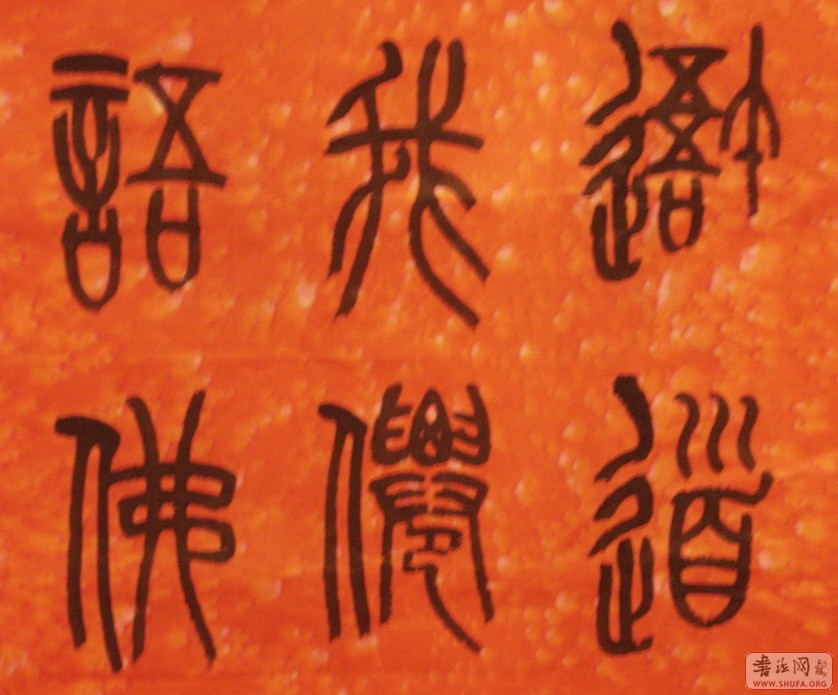 道
我僊
語佛
书法网
WWW.SHUFA.ORG